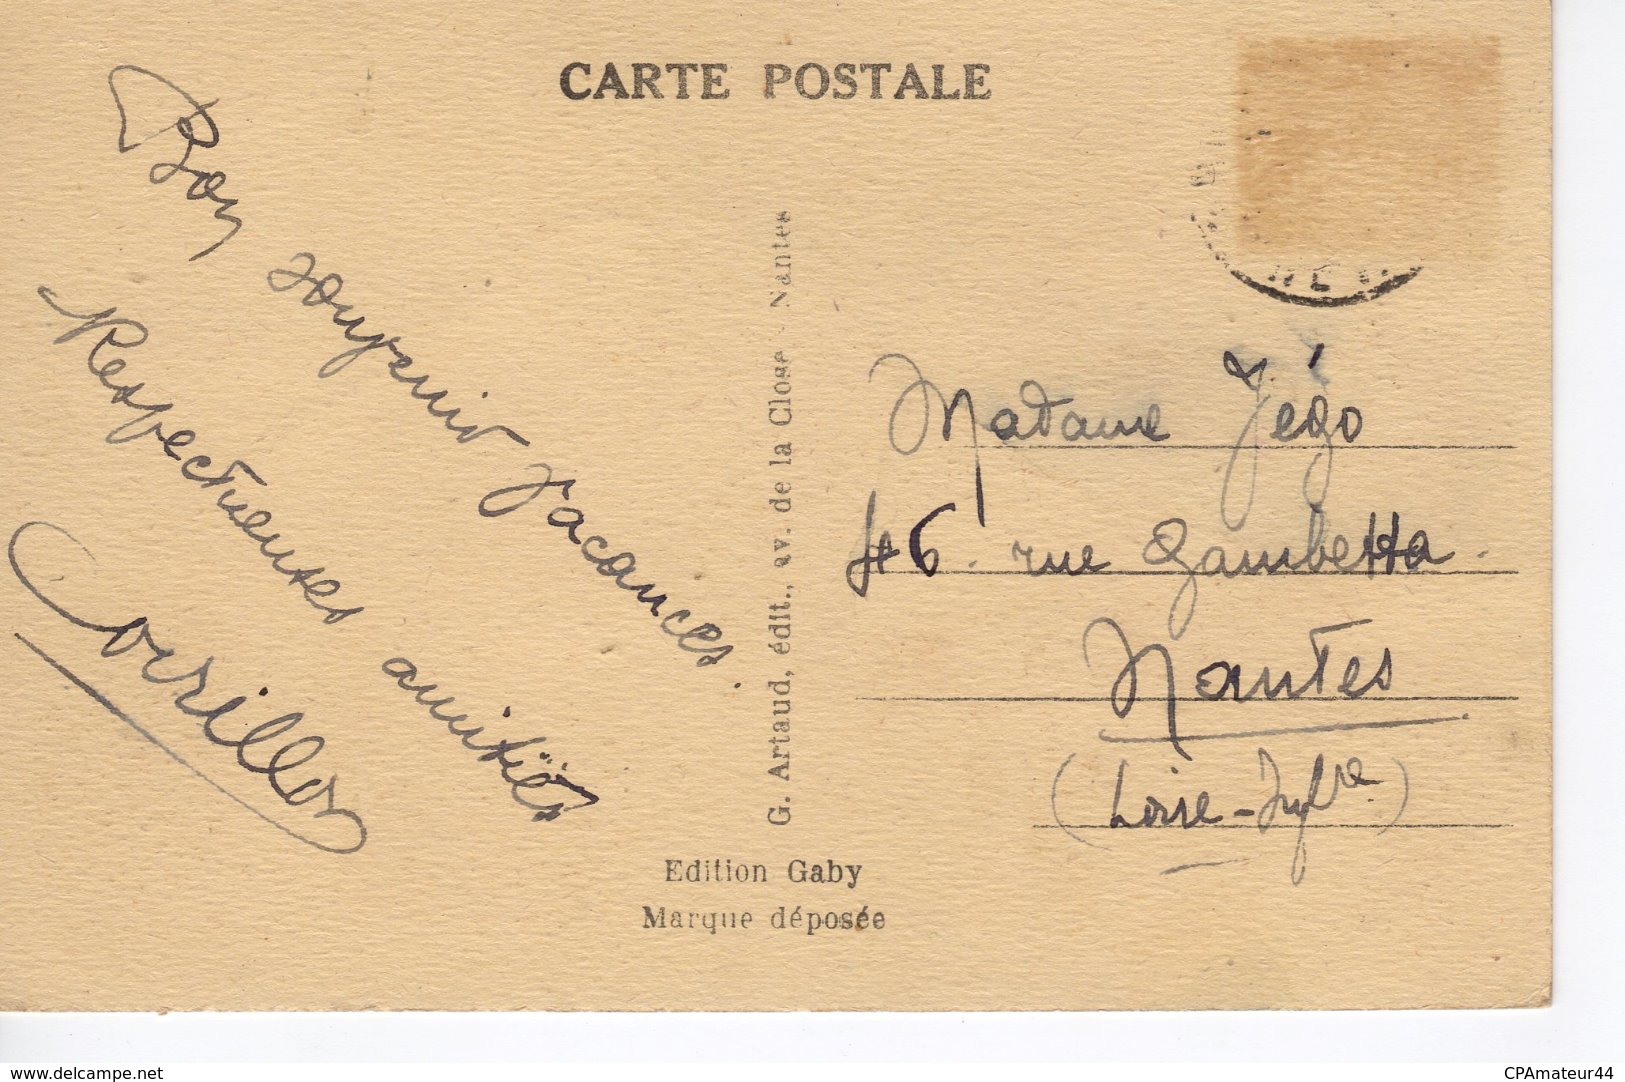 CARTE POSTALE
Bon souvenir vacances.
Respectueuses amitiés
G. Artaud, édit., av. de la Close - Nantes
Madame Jégo
46. rue Gambetta.
Nantes
(Loire-Infre)
Edition Gaby
Marque déposée
www.delcampe.net
CPAmateur44